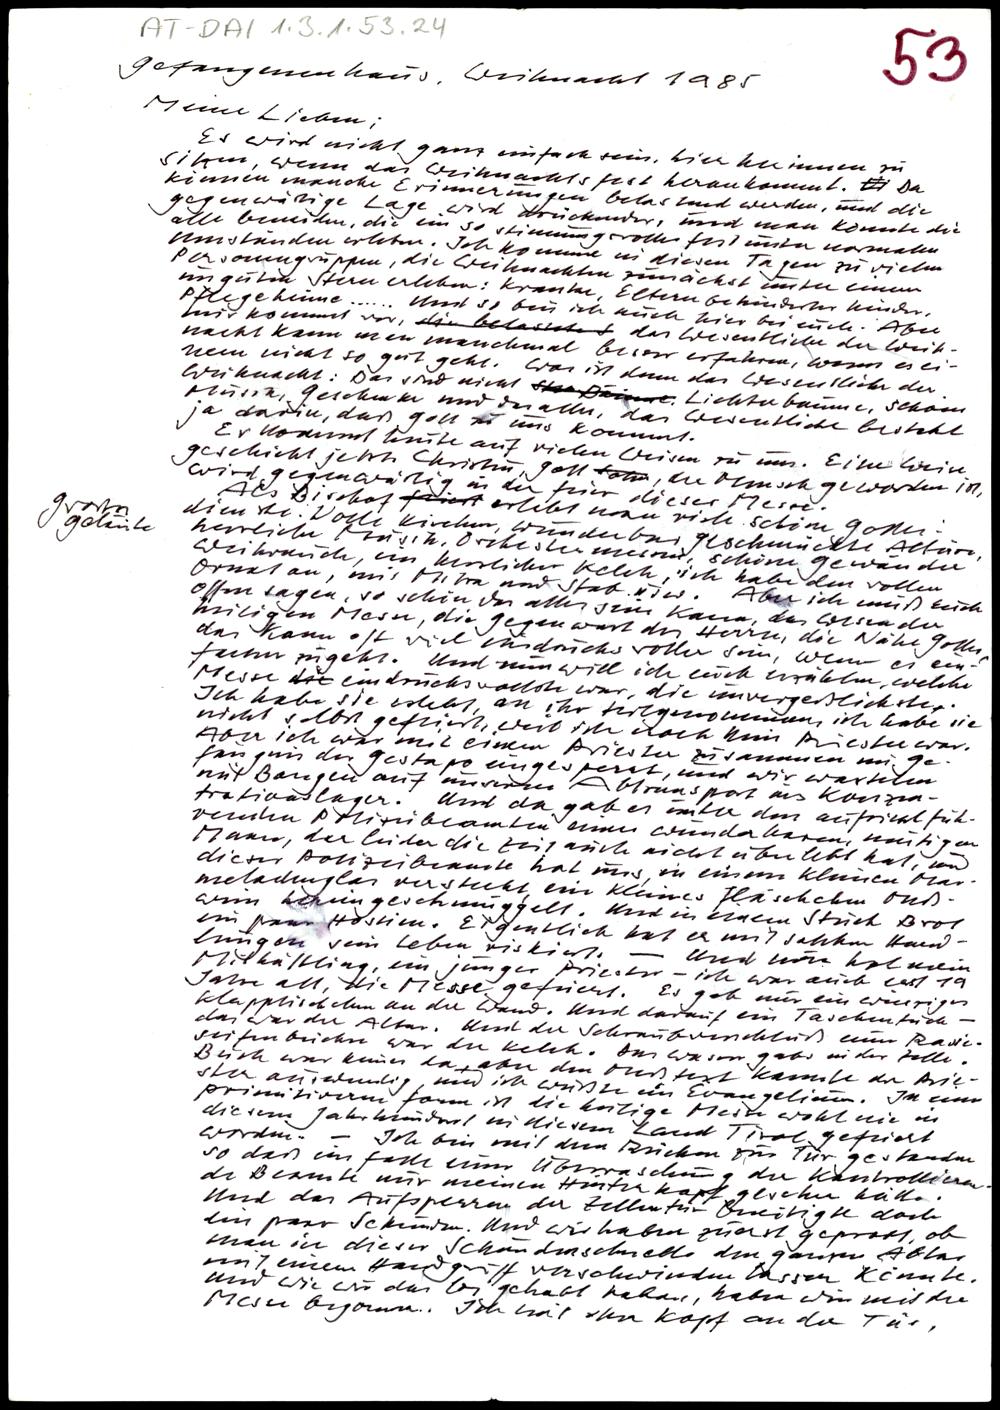 AT-DAI 1.3.1.53.24
53
Gefangenenhaus, Weihnacht 1985
Meine Lieben;
Es wird nicht ganz einfach sein, hier herinnen zu
sitzen, wenn das Weihnachtsfest herankommt. Da
können manche Erinnerungen belastend werden, und die
gegenwärtige Lage wird drückender, und man könnte die
alle beneiden, die ein so stimmungsvolles Fest unter normalen
Umständen erleben. Ich komme in diesen Tagen zu vielen
Personengruppen, die Weihnachten zunächst unter einem
unguten Stern erleben: Kranke, Eltern behinderter Kinder,
Pflegeheime ...... Und so bin ich auch hier bei euch. Aber
mir kommt vor, die belastet das Wesentliche der Weih-
nacht kann man manchmal besser erfahren, wenn es ei-
nem nicht so gut geht. Was ist denn das Wesentliche der
Weihnacht: Das sind nicht Lichterbäume, schöne
Musik, Geschenke und das alles, das Wesentliche besteht
ja darin, daß Gott zu uns kommt.
Er kommt heute auf vielen Weisen zu uns. Eine Weise
geschieht jetzt: Christus, Gott, der Mensch geworden ist,
wird gegenwärtig in der Feier dieser Messe.
Als Bischof feiert erlebt man viele schöne Gottes-
dienste. Volle Kirchen, wunderbar geschmückte Altäre,
großes
Geläute
herrliche Musik, Orchestermessen, schöne Gewänder
Weihrauch, ein herrlicher Kelch, ich habe den vollen
Ornat an, mit Mitra und Stab usw. Aber ich muß euch
offen sagen, so schön das alles sein kann, das Wesen der
heiligen Messe, die Gegenwart des Herrn, die Nähe Gottes,
das kann oft viel eindrucksvoller sein, wenn es ein-
facher zugeht. Und nun will ich euch erzählen, welche
Messe die eindrucksvollste war, die unvergeßlichste.
Ich habe sie erlebt, an ihr teilgenommen, ich habe sie
nicht selbst gefeiert, weil ich noch kein Priester war.
Aber ich war mit einem Priester zusammen im Ge-
fängnis der Gestapo eingesperrt, und wir warteten
mit Bangen auf unseren Abtransport ins Konzen-
trationslager. Und da gab es unter den aufsichtfüh-
renden Polizeibeamten einen wunderbaren, mutigen
Mann, der leider die Zeit auch nicht überlebt hat, und
dieser Polizeibeamte hat uns in einem kleinen Mar-
meladenglas versteckt ein kleines Fläschchen Meß-
wein hereingeschmuggelt. Und in einem Stück Brot
ein paar Hostien. Eigentlich hat er mit solchen Hand-
lungen sein Leben riskiert. — Und nun hat mein
Mithäftling, ein junger Priester – ich war auch erst 19
Jahre alt, die Messe gefeiert. Es gab nur ein winziges
Klapptischchen an der Wand. Und darauf ein Taschentuch –
das war der Altar. Und der Schraubverschluß einer Rasier-
seifenbüchse war der Kelch. Das Wasser gabs in der Zelle.
Buch war keines da, aber den Meßtext kannte der Prie-
ster auswendig, und ich wußte ein Evangelium. In einer
primitiveren Form ist die heilige Messe wohl nie in
diesem Jahrhundert in diesem Land Tirol gefeiert
worden. — Ich bin mit dem Rücken zur Tür gestanden
so daß im Falle einer Überraschung der kontrollieren-
de Beamte nur meinen Hinterkopf gesehen hätte.
Und das Aufsperren der Zellentür benötigte doch
ein paar Sekunden. Und wir haben zuerst geprobt, ob
man in dieser Sekundenschnelle den ganzen Altar
mit einem Handgriff verschwinden lassen könnte.
Und wie wir das los gehabt haben, haben wir mit der
Messe begonnen. Ich mit dem Kopf an der Tür,